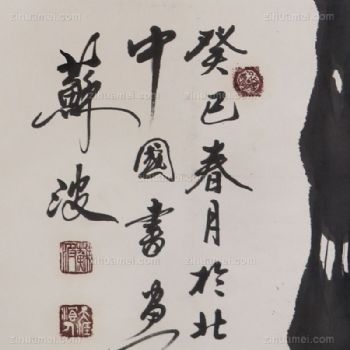 癸巳春月於北
中國書画
蘇波
zihuamei.com